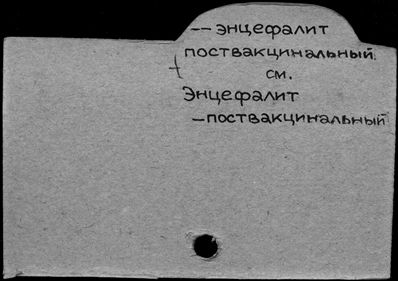 -- энцефалит
поствакцинальный
см.
Энцефалит
-поствакцинальный